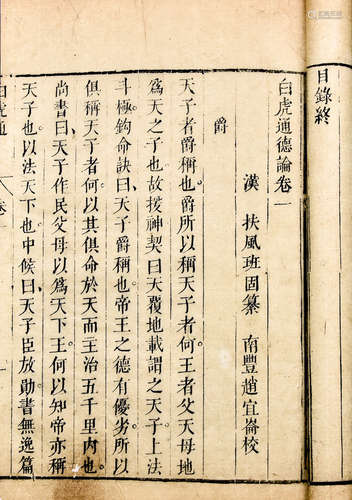 目錄終
白虎通德論卷一
漢 扶風班固纂 南豐趙宜崙校
爵
天子者爵稱也爵所以稱天子者何王者父天母地
為天之子也故援神契曰天覆地載謂之天子上法
斗極鉤命訣曰天子爵稱也帝王之德有優劣所以
俱稱天子者何以其俱命於天而主治五千里內也
尚書曰天子作民父母以為天下王何以知帝亦稱
天子也以法天下也中候曰天子臣放勛書無逸篇
白虎通 卷一